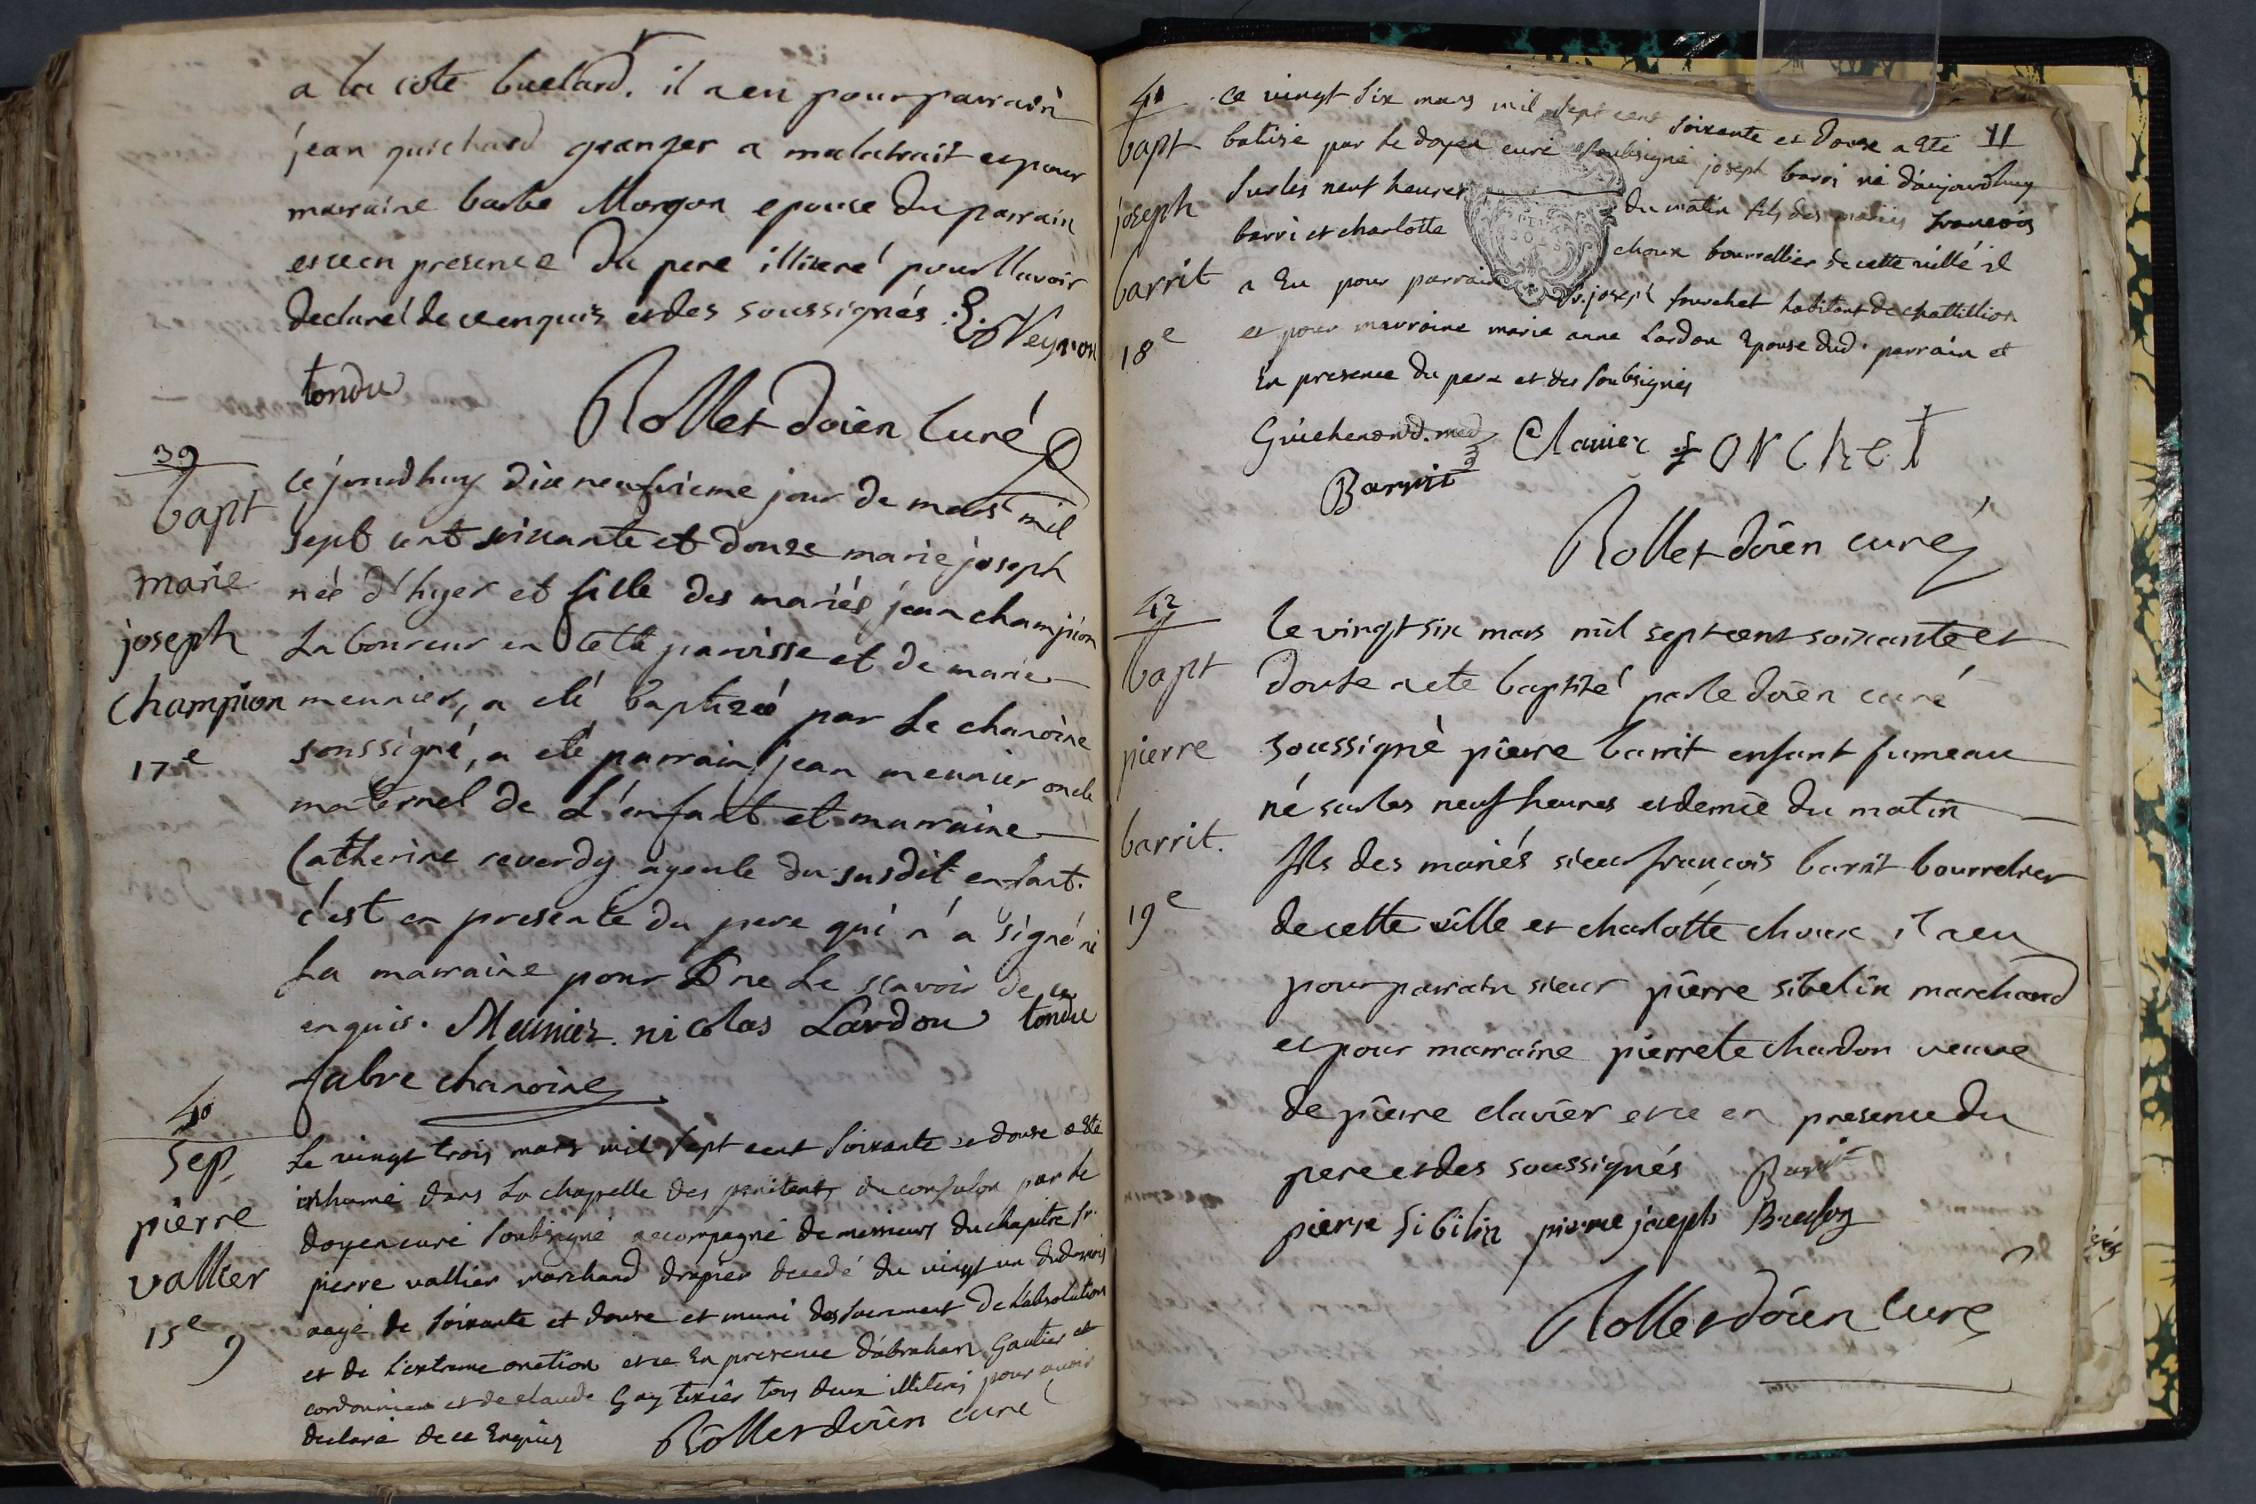 a la cote buelard. il a eu pour parrain
jean guichard granger a malatrait et pour
marraine barbe Morgon epouse du parrain
et ce en presence du pere illiteré pour llavoir
declaré de ce enquis et des soussignés Veyron
tondu
Rollet doien Curé
39
bapt
marie
joseph
champion
17e
Ce jourdhuy dix neufvieme jour de mars mil
sept cent soixante et douze marie joseph
née d'hyer et fille des mariés jean champion
Laboureur en cette parroisse et de marie
meunier, a eté baptizée par Le chanoine
soussigné, a eté parrain jean meunier oncle
maternel de L'enfant et marraine
Catherine reverdy ayeule du susdit enfant.
c'est en presente du pere qui n'a signé ni
La marraine pour ne Le scavoir de ce
enquis. Meunier. nicolas Lardon tondu
fabre chanoine
40
Sep.
pierre
vallier
15e 9
Le vingt trois mars mil sept cent soixante et douze a Eté
inhumé dans La chapelle des penitents du confalon par le
doyen curé soubsigné accompagné de messieurs du chapitre sr.
pierre vallier marchand drapier decedé du vingt un dud. mois
aagé de soixante et douze et muni des sacrement De L'absolution
et de L'extreme onction et ce En presence d'abraham Gautier et
cordonnier et de claude Gay tixier tous deux illiterés pour avoir
declaré de ce Enquis Rollet doien curé
41
bapt
joseph
barrit
18e
11
Ce vingt six mars mil sept cent soixante et Douze a Eté
batisé par le doyen curé soubsigné joseph barri né d'aujourdhuy
sur les neuf heures du matin fils des mariés francois
barri et charlotte choux bourrellier de cette ville il
a Eu pour parrain Sr. joseph fourchet habitant de chattillion
et pour marraine marie anne Lardon Epouse dud. parrain et
En presence du pere et des soubsignés
Guichenond. med Clavier fOrChet
Barrit
Rollet doien curé
42
bapt
pierre
barrit.
19e
Le vingt six mars mil sept cent soixante et
douse a ete baptisé par le doien curé
soussigné pierre barrit enfant jumeau
né sur les neuf heures et demie du matin
fils des mariés sieur francois barrit bourrelier
de cette ville et charlotte choux il a eu
pour parrain sieur pierre sibelin marchand
et pour marraine pierrete chardon veuve
de pierre clavier et ce en presence du
pere et des soussignés Barit
pierre Sibilin pierre joseph
Rollet doien Curé